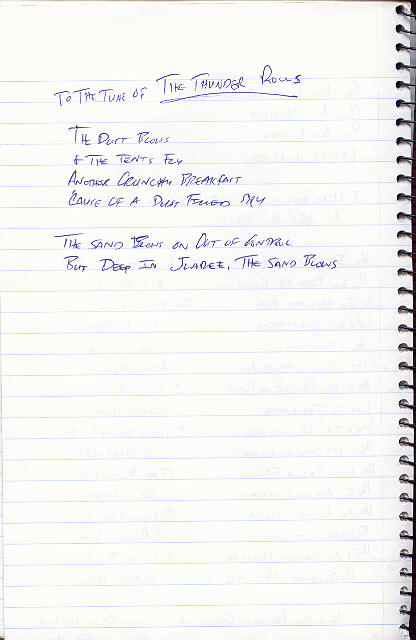 TO THE TUNE OF THE THUNDER ROLLS
THE DUST BLOWS
& THE TENTS FLY
ANOTHER CRUNCHY BREAKFAST
CAUSE OF A DUST FILLED SKY
THE SAND BLOWS ON OUT OF CONTROL
BUT DEEP IN JUAREZ, THE SAND BLOWS